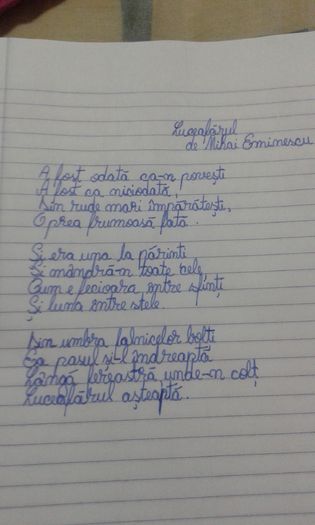 Luceafărul
de Mihai Eminescu
A fost odată ca-n povești
A fost ca niciodată,
Din rude mari împărătești,
O prea frumoasă fată.
Și era una la părinți
Și mândră-n toate cele,
Cum e fecioara între sfinți
Și luna între stele.
Din umbra falnicelor bolți
Ea pasul și-l îndreaptă
Lângă fereastră, unde-n colț
Luceafărul așteaptă.